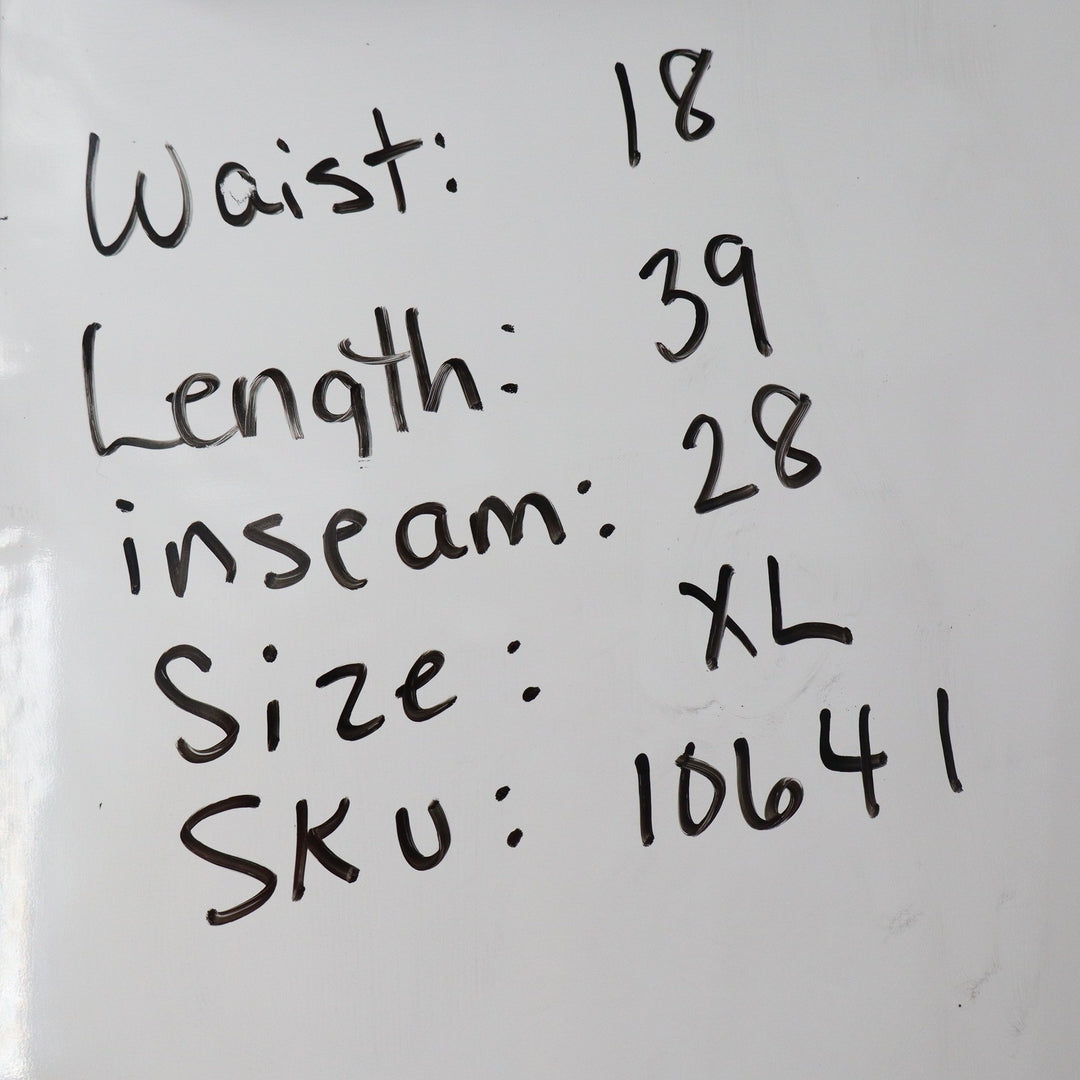 Waist: 18
Length: 39
inseam: 28
Size: XL
SKU: 10641